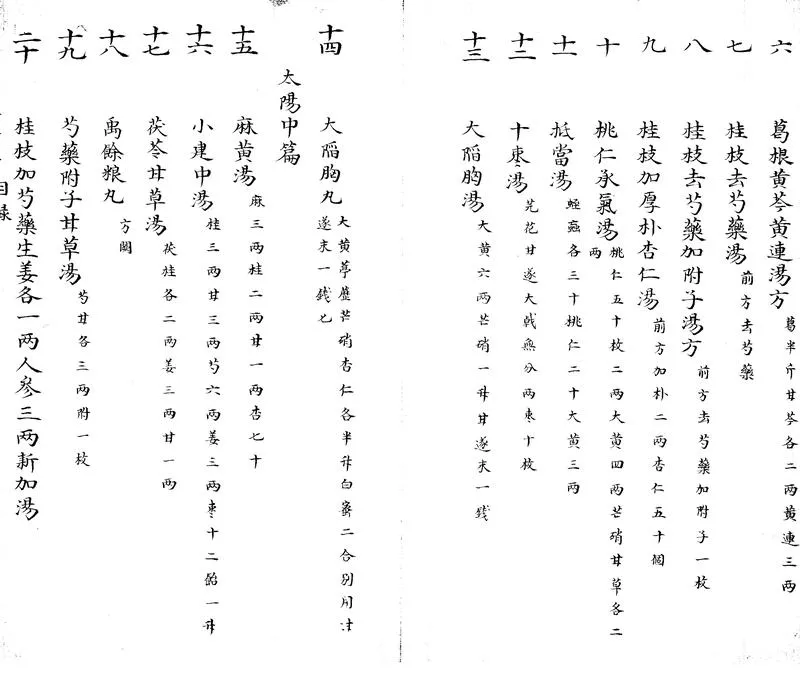 六 葛根黄芩黄連湯方 葛半斤甘芩各二两黄連三两
七 桂枝去芍藥湯 前方去芍藥
八 桂枝去芍藥加附子湯方 前方去芍藥加附子一枚
九 桂枝加厚朴杏仁湯 前方加朴二两杏仁五十個
十 桃仁承氣湯 桃仁五十枚二两大黄四两芒硝甘草各二两
十一 抵當湯 蛭蝱各三十桃仁二十大黄三两
十二 十枣湯 芫花甘遂大戟 分两枣十枚
十三 大陷胸湯 大黄六两芒硝一升甘遂末一錢
十四 大陷胸丸 大黄葶藶芒硝杏仁各半升白蜜二合别用
遂末一錢匕
太陽中篇
十五 麻黄湯 麻三两桂二两甘一两杏七十
十六 小建中湯 桂三两甘三两芍六两姜三两枣十二飴一升
十七 茯苓甘草湯 茯桂各二两姜三两甘一两
十八 禹餘粮丸 方闕
十九 芍藥附子甘草湯 芍甘各三两附一枚
二十 桂枝加芍藥生姜各一两人參三两新加湯
目録